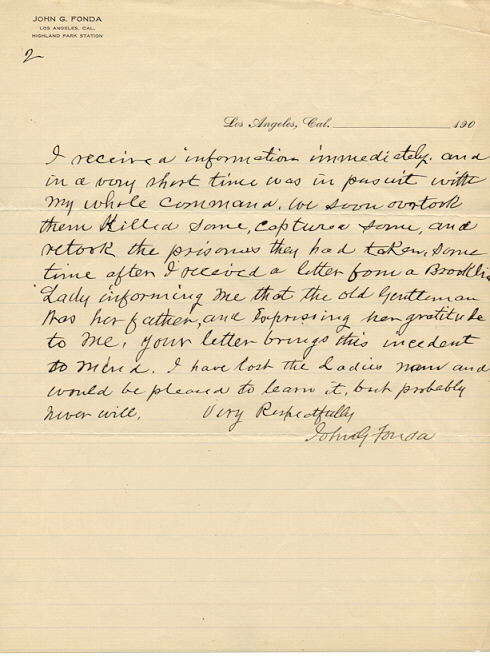 JOHN G. FONDA
LOS ANGELES, CAL.
HIGHLAND PARK STATION
2
Los Angeles, Cal. 190
I received information immediately. and
in a very short time was in pursuit with
my whole command. we soon overtook
them Killed some, captured some, and
retook the prisoners they had taken. some
time after I received a letter from a Brooklin
Lady informing me that the old Gentleman
was her father, and Expressing her gratitude
to me, your letter brings this incedent
to mind. I have lost the Ladies name and
would be pleased to learn it, but probably
never will. Very Respectfully
John G Fonda